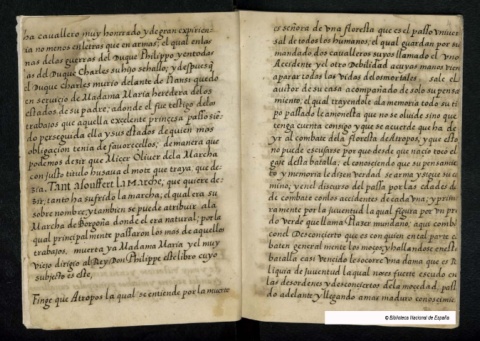 ha cavallero muy honrado y de gran experien
cia no menos en letras que en armas; el qual en to
nas de las guerras del Duque Philippo y entodas
as del Duque Charles su hijo se hallo; y despues q
el Duque Charles murio delante de Nansi quedo
en servicio de Madama Maria heredera de los
estados de su padre; adonde el fue testigo de los
trabajos que aquella excelente princesa passo sien
do perseguida ella y sus estados de quien mas
obligacion tenia de favorecellos; demanera que
podemos dezir que Miçer Olivier dela Marcha
con justo titulo husava el mote que traya que de
zia, Tant a souffert La Marche, que quiere de
zir; tanto ha sufrido la marcha; el qual era su
sobre nombre; y tambien se puede atribuir ala
Marcha de Borgoña donde el era natural; por la
qual principalmente passaron los mas de aquellos
trabajos, muerta ya Madama Maria y el muy
viejo dirigio al Rey Don Philippe este libro cuyo
subjecto es este,
Finge que Atropos la qual se entiende por la muerte
es señora de una floresta que es el passo univer
sal de todos los humanos; el qual guardan por su
mandado dos cavalleros suyos llamados el Uno
Accidente y el otro Debilidad a cuyas manos vienen
a parar todas las vidas de los mortales, sale el
auctor de su casa acompañado de solo su pensa
miento, el qual trayendole ala memoria todo su ti
po passado le amonesta que no se olvide sino que
tenga cuenta consigo y que se acuerde que ha de
yr al combate dela floresta de Atropos, y que esto
no puede escusarse por que desde que nacio toco el
gaje desta batalla; el conosciendo que su pensamie
to y memoria le dizen verdad se arma y sigue su ca
mino, y en el discurso del passa por las edades dō
de combate con los accidentes de cada una; y prime
ramente por la juventud la qual figura por un pra
do verde que llama Plazer mundano, aqui combate
con el Desconcierto que es con quien en tal parte cō
baten generalmente los moços y hallandose en esta
batalla casi vencido le socorre una dama que es Re
liquia de Juventud la qual nos es fuerte escudo en
las desordenes y desconciertos dela mocedad. passā
do adelante y llegando a mas maduro conoscimie
© Biblioteca Nacional de España